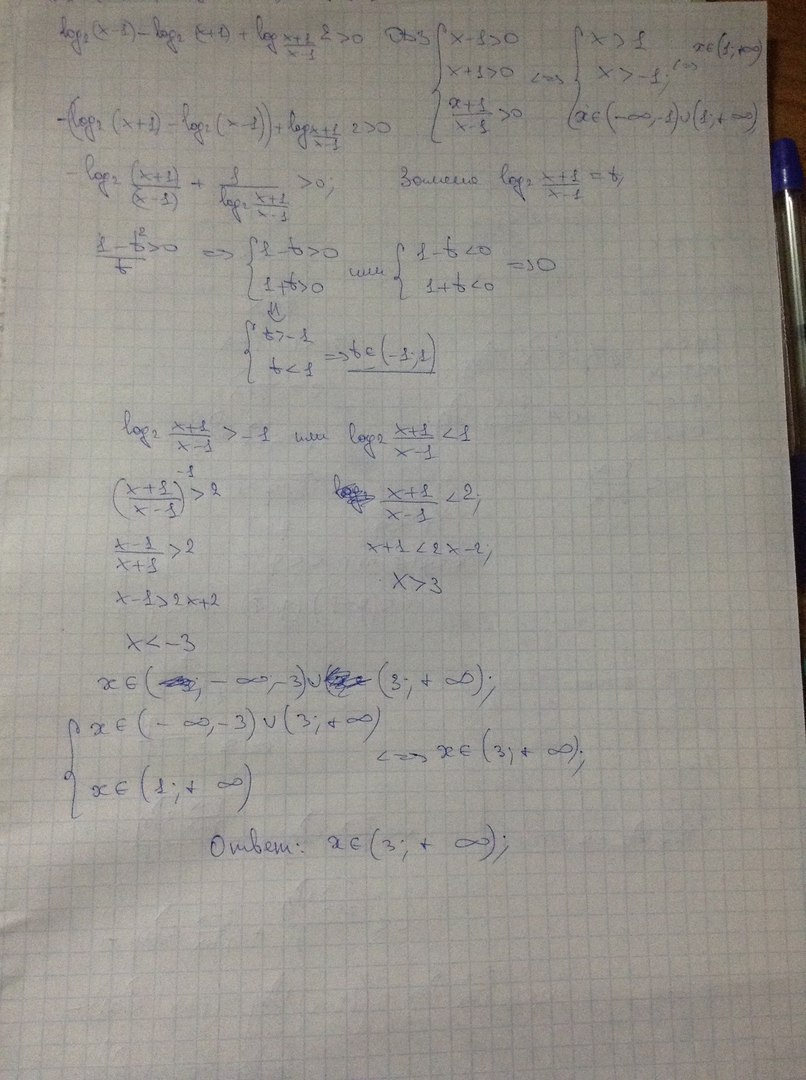 log₂(x-1) - log₂(x+1) + log_{\frac{x+1}{x-1}} 2 > 0 ОДЗ { x-1>0 ; x+1>0 ; \frac{x+1}{x-1}>0 <=> { x>1 ; x>-1; ; x∈(-∞,-1)∪(1;+∞) <=> x∈(1;+∞)
-(log₂(x+1) - log₂(x-1)) + log_{\frac{x+1}{x-1}} 2>0
-log₂ \frac{(x+1)}{(x-1)} + \frac{1}{log₂ \frac{x+1}{x-1}} >0; Замена log₂ \frac{x+1}{x-1} = t;
\frac{1-t²}{t}>0 => { 1-t>0 ; 1+t>0 или { 1-t<0 ; 1+t<0 => 0
{ t>-1 ; t<1 => t∈(-1;1)
log₂ \frac{x+1}{x-1} > -1 или log₂ \frac{x+1}{x-1} < 1
(\frac{x+1}{x-1})^{-1} > 2 \frac{x+1}{x-1} < 2;
\frac{x-1}{x+1} > 2 x+1 < 2x-2;
x-1>2x+2 x>3
x<-3
x∈( -∞,-3)∪(3;+∞);
{ x∈(-∞,-3)∪(3;+∞) ; x∈(1;+∞) <=> x∈(3;+∞);
Ответ: x∈(3;+∞);